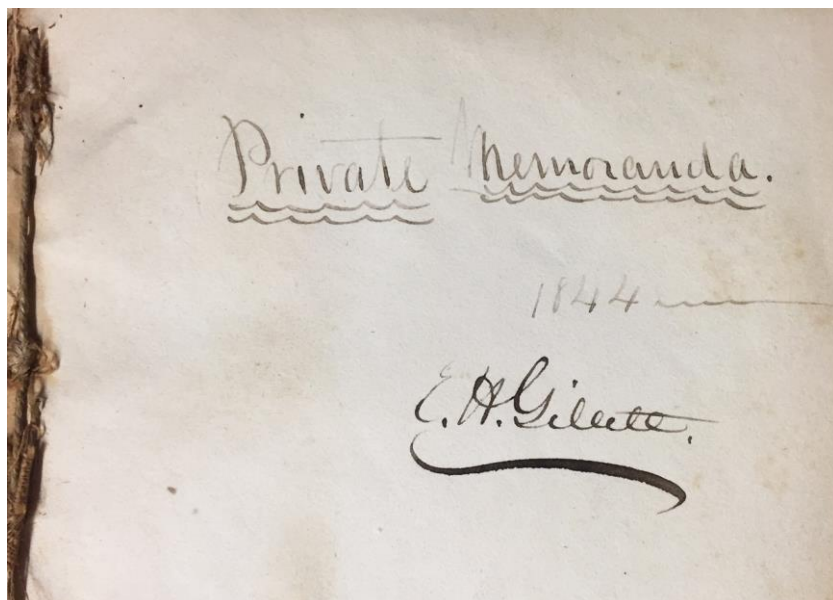 Private Memoranda.
1844
E. H. Gillett.